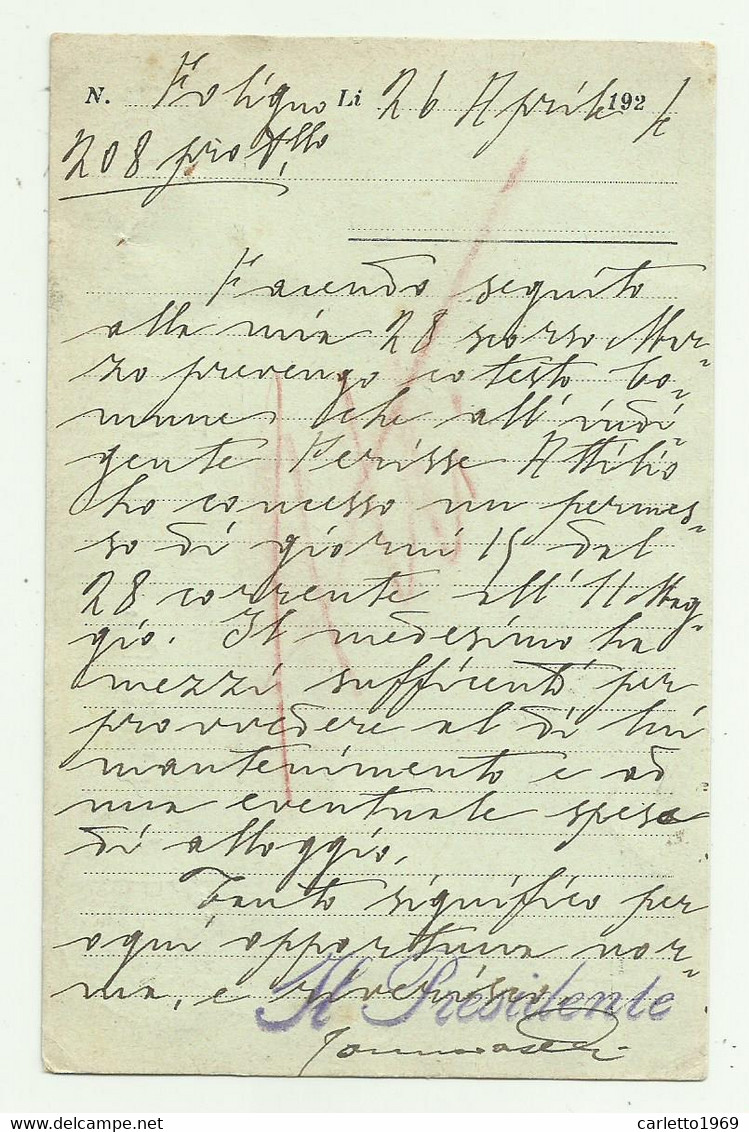 N. Foligno Li 26 Aprile 1924
208 prot.llo
Facendo seguito
alla mia 28 scorso Mar-
zo prevengo cotesto Co-
mune che all'indi-
gente Ferisse Attilio
ho concesso un permes-
so di giorni 15 dal
28 corrente all'11 Mag-
gio. Il medesimo ha
mezzi sufficenti per
provvedere al di lui
mantenimento e ad
una eventuale spesa
di alloggio.
Tanto significo per
ogni opportuna nor-
ma, e riverisco.
Il Presidente
carletto1969